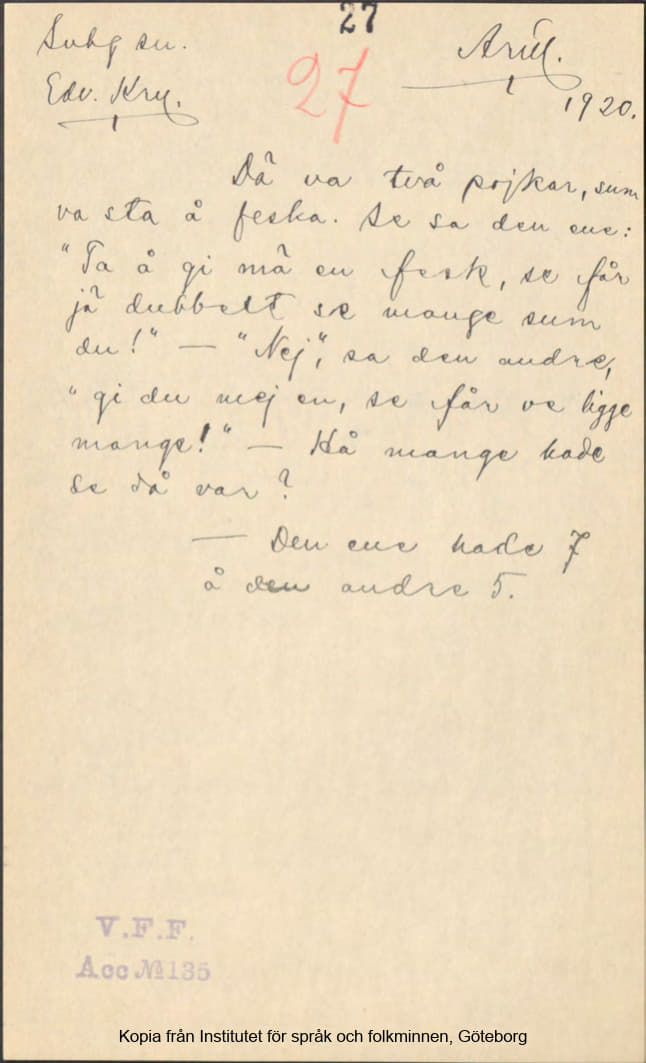 27
27
Edv. Kru.
1920.
Dä va två pojkar, sum
va sta å feska. Se sa den ene:
"Ta å gi mä en fesk, se får
jä dubbelt se mange sum
du!" — "Nej", sa den andre,
"gi du mej en, se får ve ligge
mange!" — Hå mange hade
se då var?
— Den ene hade 7
å den andre 5.
V.F.F.
Acc № 135
Kopia från Institutet för språk och folkminnen, Göteborg